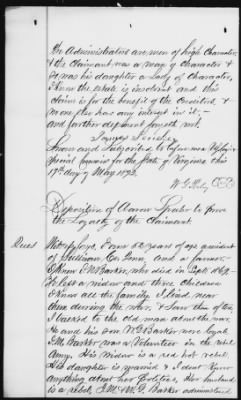 The Administrators are men of high Character
& the Claimant was a man of Character &
so was his daughter a Lady of Character,
I know the estate is insolvent and this
claim is for the benefit of the Creditors, &
no one else has any interest in it —
and further deponent saith not.
Sworn and Subscribed to before me
Special Commr for the State of Virginia this
17th day of May 1872.
Deposition of Aaron to prove
the Loyalty of the Claimant
Rees
Witness Says, I am 52 years of age a resident
of Sullivan Co. Tenn, and a farmer
I knew Barker, who died in Sept 1862
He left a widow and three Children
I knew all the family I lived near
them during the War, & saw them often
I talked to the old man about the war
He and his son Barker were loyal
Barker was a Volunteer in the rebel
Army. His widow is a red hot rebel.
His daughter is married & I dont know
anything about her Politics, Her husband
is a rebel. Barker administered